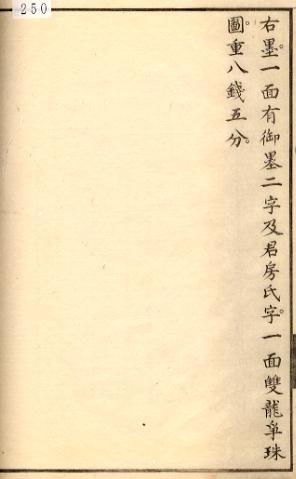 250
右墨。一面有御墨二字及君房氏字。一面雙龍爭珠
圖。重八錢五分。